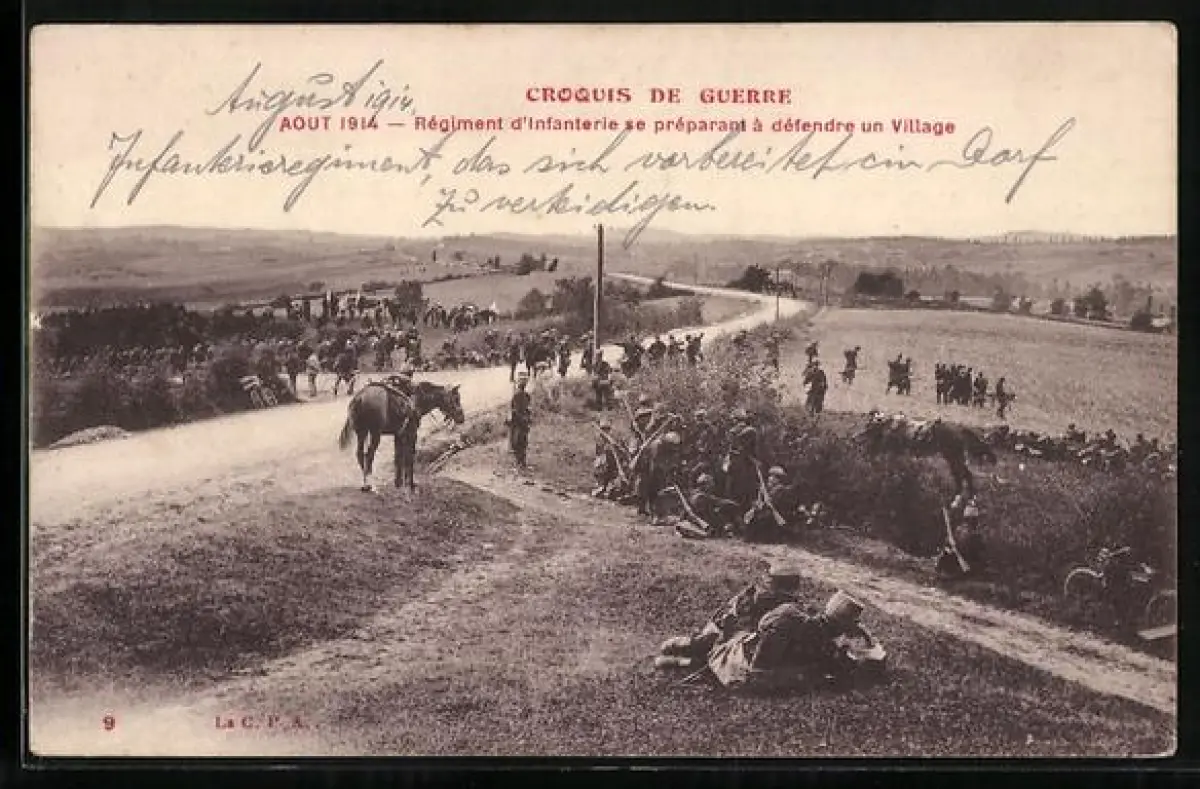 CROQUIS DE GUERRE
August 1914.
AOUT 1914 — Régiment d'Infanterie se préparant à défendre un Village
Infantrieregiment, das sich vorbereitet ein Dorf
zu verteidigen.
9 La C. P. A.